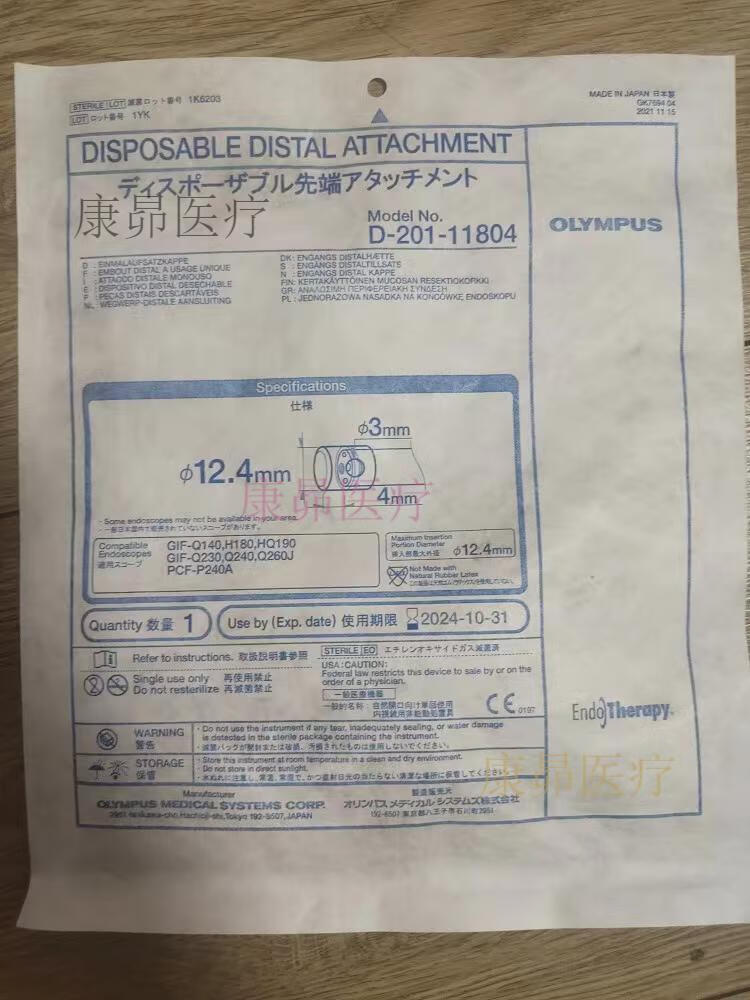 STERILE LOT 滅菌ロット番号 1K6203
LOT ロット番号 1YK
MADE IN JAPAN 日本製
GK7694 04
2021 11 15
DISPOSABLE DISTAL ATTACHMENT
ディスポーザブル先端アタッチメント
康昴医疗
Model No.
D-201-11804
OLYMPUS
D : EINMALAUFSATZKAPPE
F : EMBOUT DISTAL A USAGE UNIQUE
I : ATTACCO DISTALE MONOUSO
E : DISPOSITIVO DISTAL DESECHABLE
P : PEÇAS DISTAIS DESCARTÁVEIS
NL: WEGWERP-DISTALE AANSLUITING
DK: ENGANGS DISTALHÆTTE
S : ENGÅNGS DISTALTILLSATS
N : ENGANGS DISTAL KAPPE
FIN: KERTAKÄYTTÖINEN MUCOSAN RESEKTIOKORKKI
GR: ΑΝΑΛΩΣΙΜΗ ΠΕΡΙΦΕΡΕΙΑΚΗ ΣΥΝΔΕΣΗ
PL: JEDNORAZOWA NASADKA NA KOŃCÓWKĘ ENDOSKOPU
Specifications
仕様
φ3mm
φ12.4mm
4mm
康昴医疗
· Some endoscopes may not be available in your area.
· 一部日本国内で販売されていないスコープがあります。
Compatible Endoscopes 適用スコープ
GIF-Q140,H180,HQ190
GIF-Q230,Q240,Q260J
PCF-P240A
Maximum Insertion Portion Diameter 挿入部最大外径 φ12.4mm
Not Made with
Natural Rubber Latex
Quantity 数量 1
Use by (Exp. date) 使用期限 2024-10-31
Refer to instructions. 取扱説明書参照
Single use only 再使用禁止
Do not resterilize 再滅菌禁止
STERILE EO エチレンオキサイドガス滅菌済
USA:CAUTION:
Federal law restricts this device to sale by or on the
order of a physician.
一般医療機器
一般的名称: 自然開口向け単回使用
内視鏡用非能動処置具
CE 0197
EndoTherapy
WARNING
警告
· Do not use the instrument if any tear, inadequately sealing, or water damage
is detected in the sterile package containing the instrument.
· 滅菌パックが開封または破損、汚損されたものは使用しないでください。
STORAGE
保管
· Store this instrument at room temperature in a clean and dry environment.
· Do not store in direct sunlight.
· 水ぬれに注意し、常温、常湿で、かつ直射日光の当たらない清潔な場所に保管してください。
康昴医疗
Manufacturer
OLYMPUS MEDICAL SYSTEMS CORP.
2951 Ishikawa-cho,Hachioji-shi,Tokyo 192-8507,JAPAN
製造販売元
オリンパスメディカルシステムズ株式会社
192-8507 東京都八王子市石川町2951